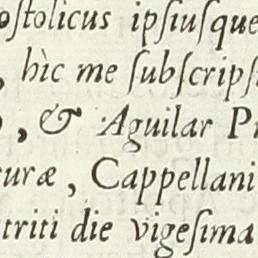 oſtolicus ipſiuſque
, hìc me ſubſcripſi
, & Aguilar Pr
curæ, Cappellani
triti die vigeſima